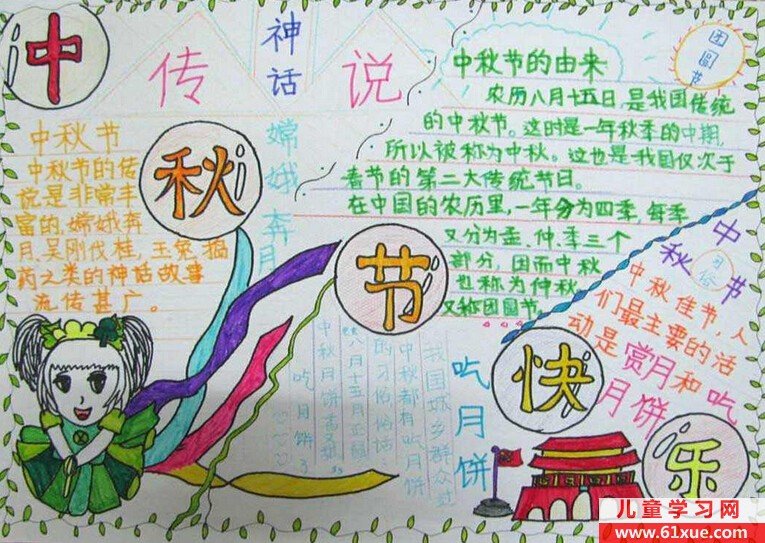 中秋节快乐
神话
传说
嫦娥奔月
中秋节
中秋节的传
说是非常丰
富的,嫦娥奔
月,吴刚伐桂,玉兔捣
药之类的神话故事
流传甚广。
团圆节
中秋节的由来
农历八月十五日,是我国传统
的中秋节。这时是一年秋季的中期,
所以被称为中秋。这也是我国仅次于
春节的第二大传统节日。
在中国的农历里,一年分为四季,每季
又分为孟、仲、季三个
部分,因而中秋
也称为仲秋
又称团圆节。
中秋节
习俗
中秋佳节,人
们最主要的活
动是赏月和吃
月饼
吃月饼
我国城乡群众过
中秋都有吃月饼
的习俗,俗话
八月十五月正圆
中秋月饼香又甜
吃月饼了
儿童学习网
www.61xue.com